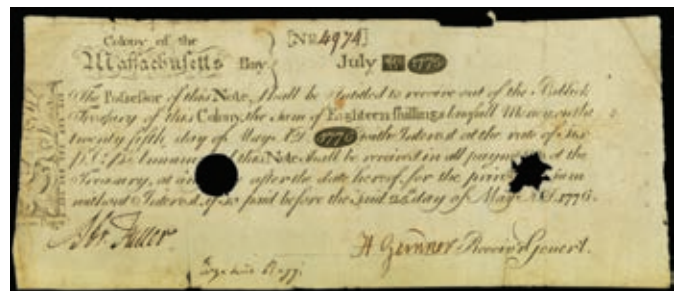 Colony of the
Massachusetts Bay
[No 4974]
July 1775
The Possessor of this Note, shall be Intitled to receive out of the Publick
Treasury of this Colony, the Sum of Eighteen shillings lawfull Money, on the
twenty fifth day of May AD 1776 with Interest at the rate of Six
this Note shall be received in all payments at the
Treasury, at after the date hereof, for the
without Interest, if so paid before the said 25th day of May AD. 1776.
Abr. Fuller
H Gardner Receivr Generl.